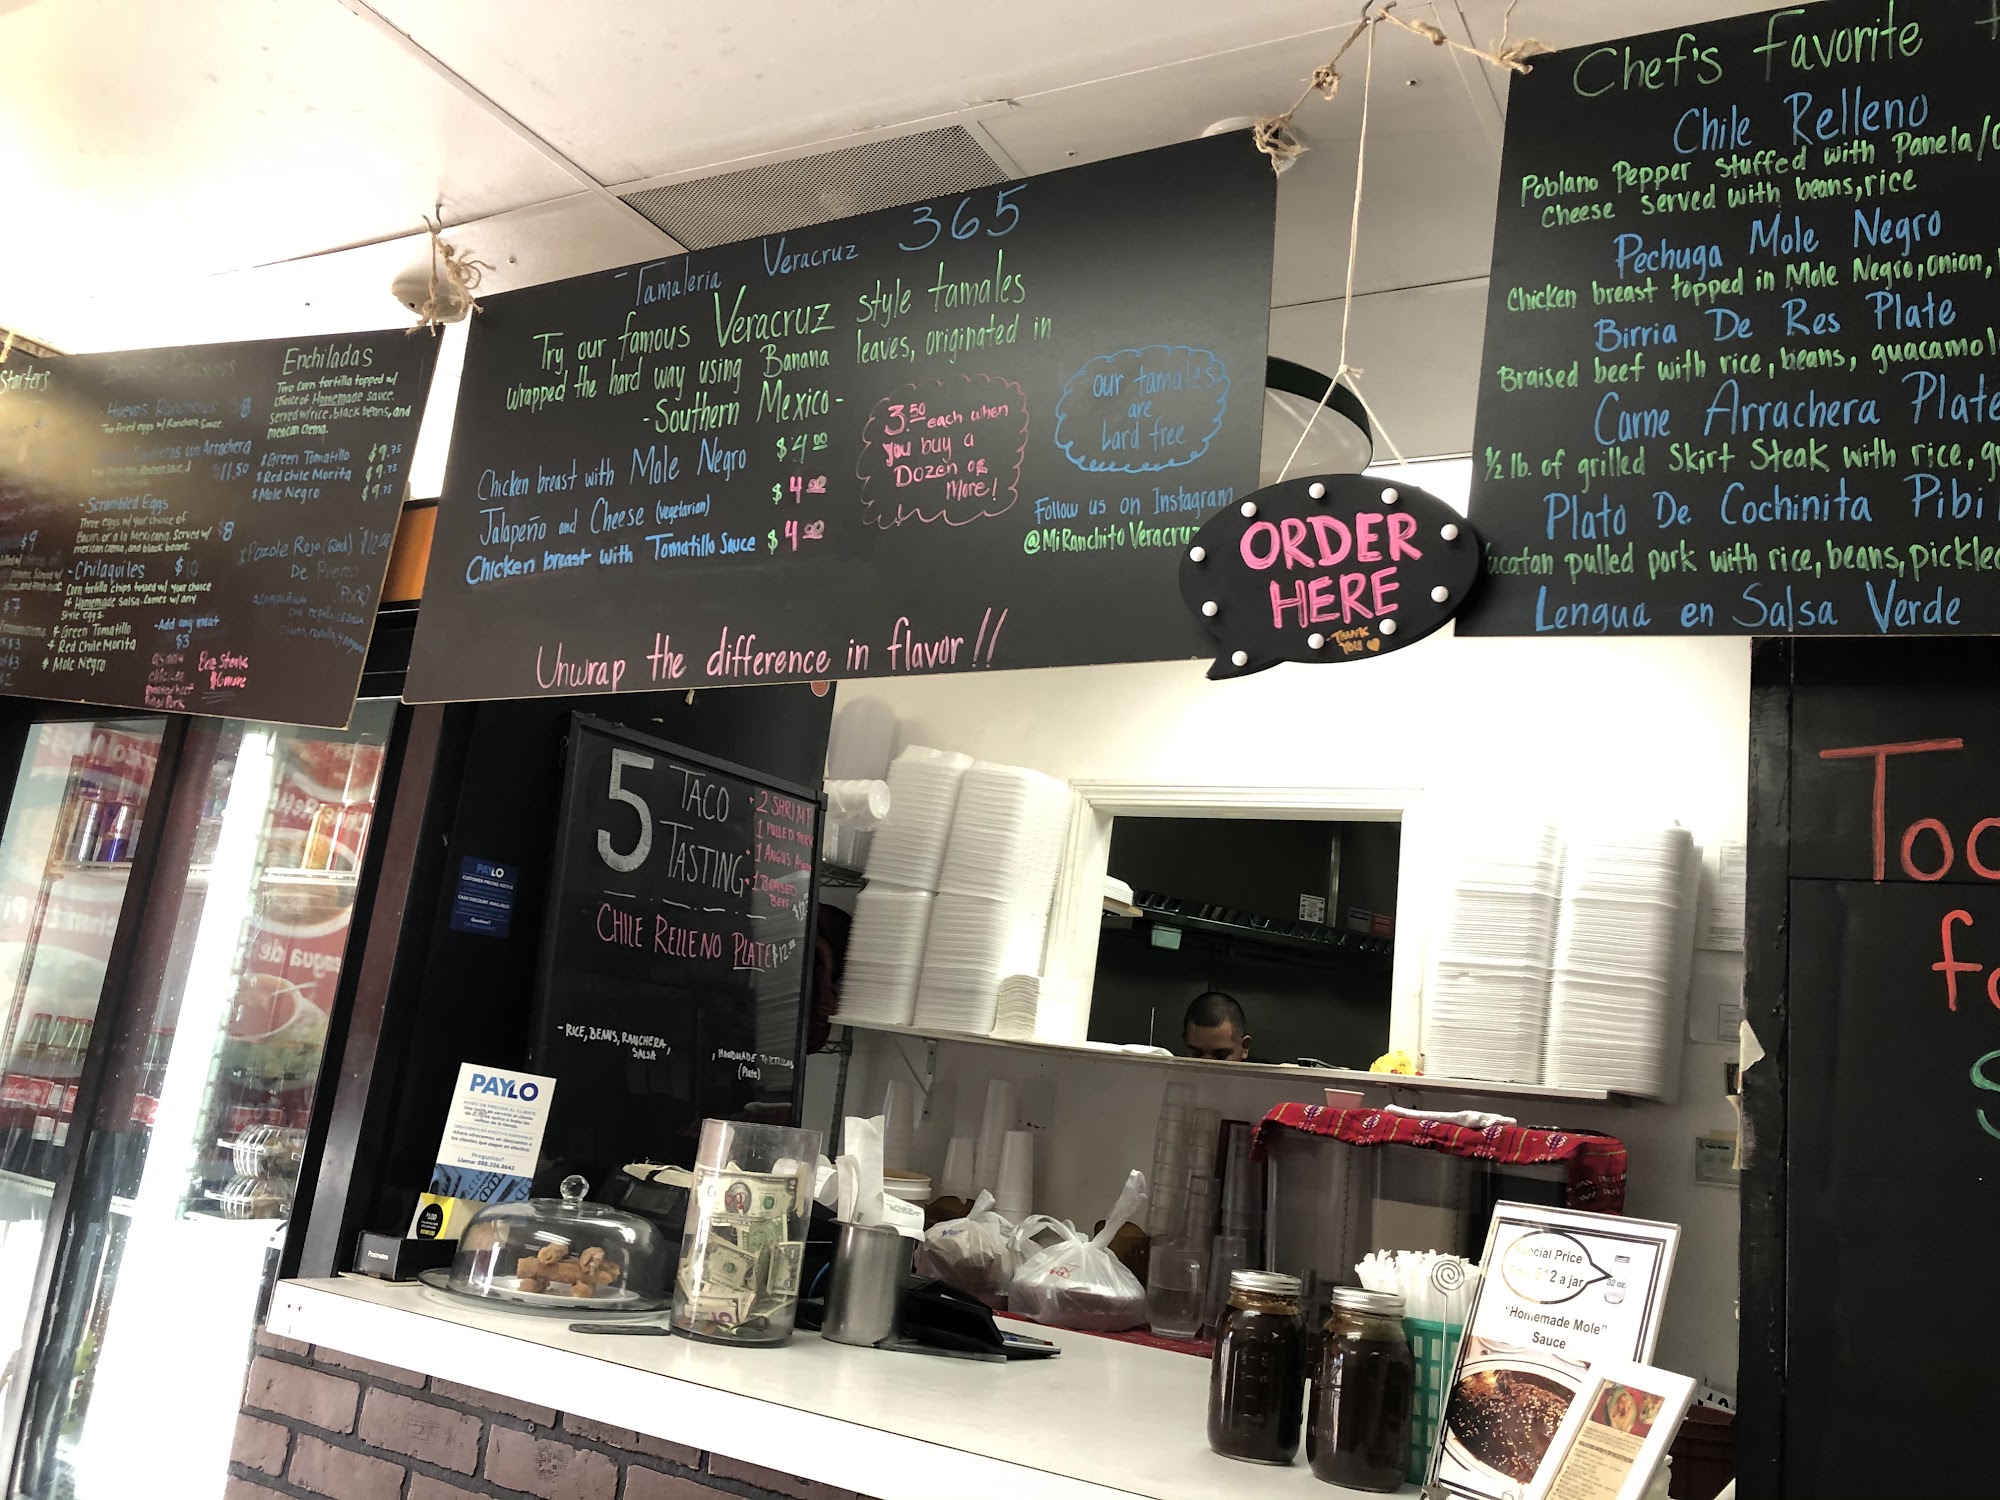 Starters
- Huevos Rancheros $8
Two fried eggs w/ Ranchera Sauce.
$11.50
- Scrambled Eggs
Three eggs w/ your choice of
Bacon, or a la Mexicana. Served w/
mexican crema, and black beans.
$8
- Chilaquiles $10
Corn tortilla chips tossed w/ your choice
of Homemade Salsa. Comes w/ any
style eggs.
* Green Tomatillo
* Red Chile Morita
* Mole Negro
- Add any meat
$3
$9
$7
$3
$3
$2
Enchiladas
Two corn tortilla topped w/
choice of Homemade sauce.
Served w/ rice, black beans, and
mexican crema.
* Green Tomatillo $9.75
* Red Chile Morita $9.75
* Mole Negro $9.75
* Pozole Rojo (Red) $12.00
De Puerco
(Pork)
- Tamaleria Veracruz 365
Try our famous Veracruz style tamales
wrapped the hard way using Banana leaves, originated in
- Southern Mexico -
Chicken breast with Mole Negro $4.00
Jalapeño and Cheese (vegetarian) $4.00
Chicken breast with Tomatillo Sauce $4.00
3.50 each when
you buy a
Dozen or
More!
our tamales
are
Lard free
Follow us on Instagram
@MiRanchitoVeracruz
Unwrap the difference in flavor!!
ORDER
HERE
Thank
You
Chef's Favorite
Chile Relleno
Poblano Pepper Stuffed with Panela/
Cheese served with beans, rice
Pechuga Mole Negro
Chicken breast topped in Mole Negro, onion,
Birria De Res Plate
Braised beef with rice, beans, guacamol
Carne Arrachera Plate
1/2 lb. of grilled Skirt Steak with rice, g
Plato De Cochinita Pibi
Yucatan pulled pork with rice, beans, pickled
Lengua en Salsa Verde
5 TACO
TASTING
• 2 SHRIMP
1 PULLED PORK
• 1 ANGUS
• 1 BRAISED
BEEF
CHILE RELLENO PLATE $12.00
- RICE, BEANS, RANCHERA,
SALSA
, HANDMADE TORTILLAS
(Plate)
PAYLO
CUSTOMER PRICING NOTICE
CASH DISCOUNT AVAILABLE!
Questions?
PAYLO
AVISO DE PRECIOS AL CLIENTE
DESCUENTO EN EFECTIVO DISPONIBLE!
Preguntas?
Llamar 888.226.8643
Postmates
Special Price
$12 a jar
32 oz.
"Homemade Mole"
Sauce
Too
fo
S